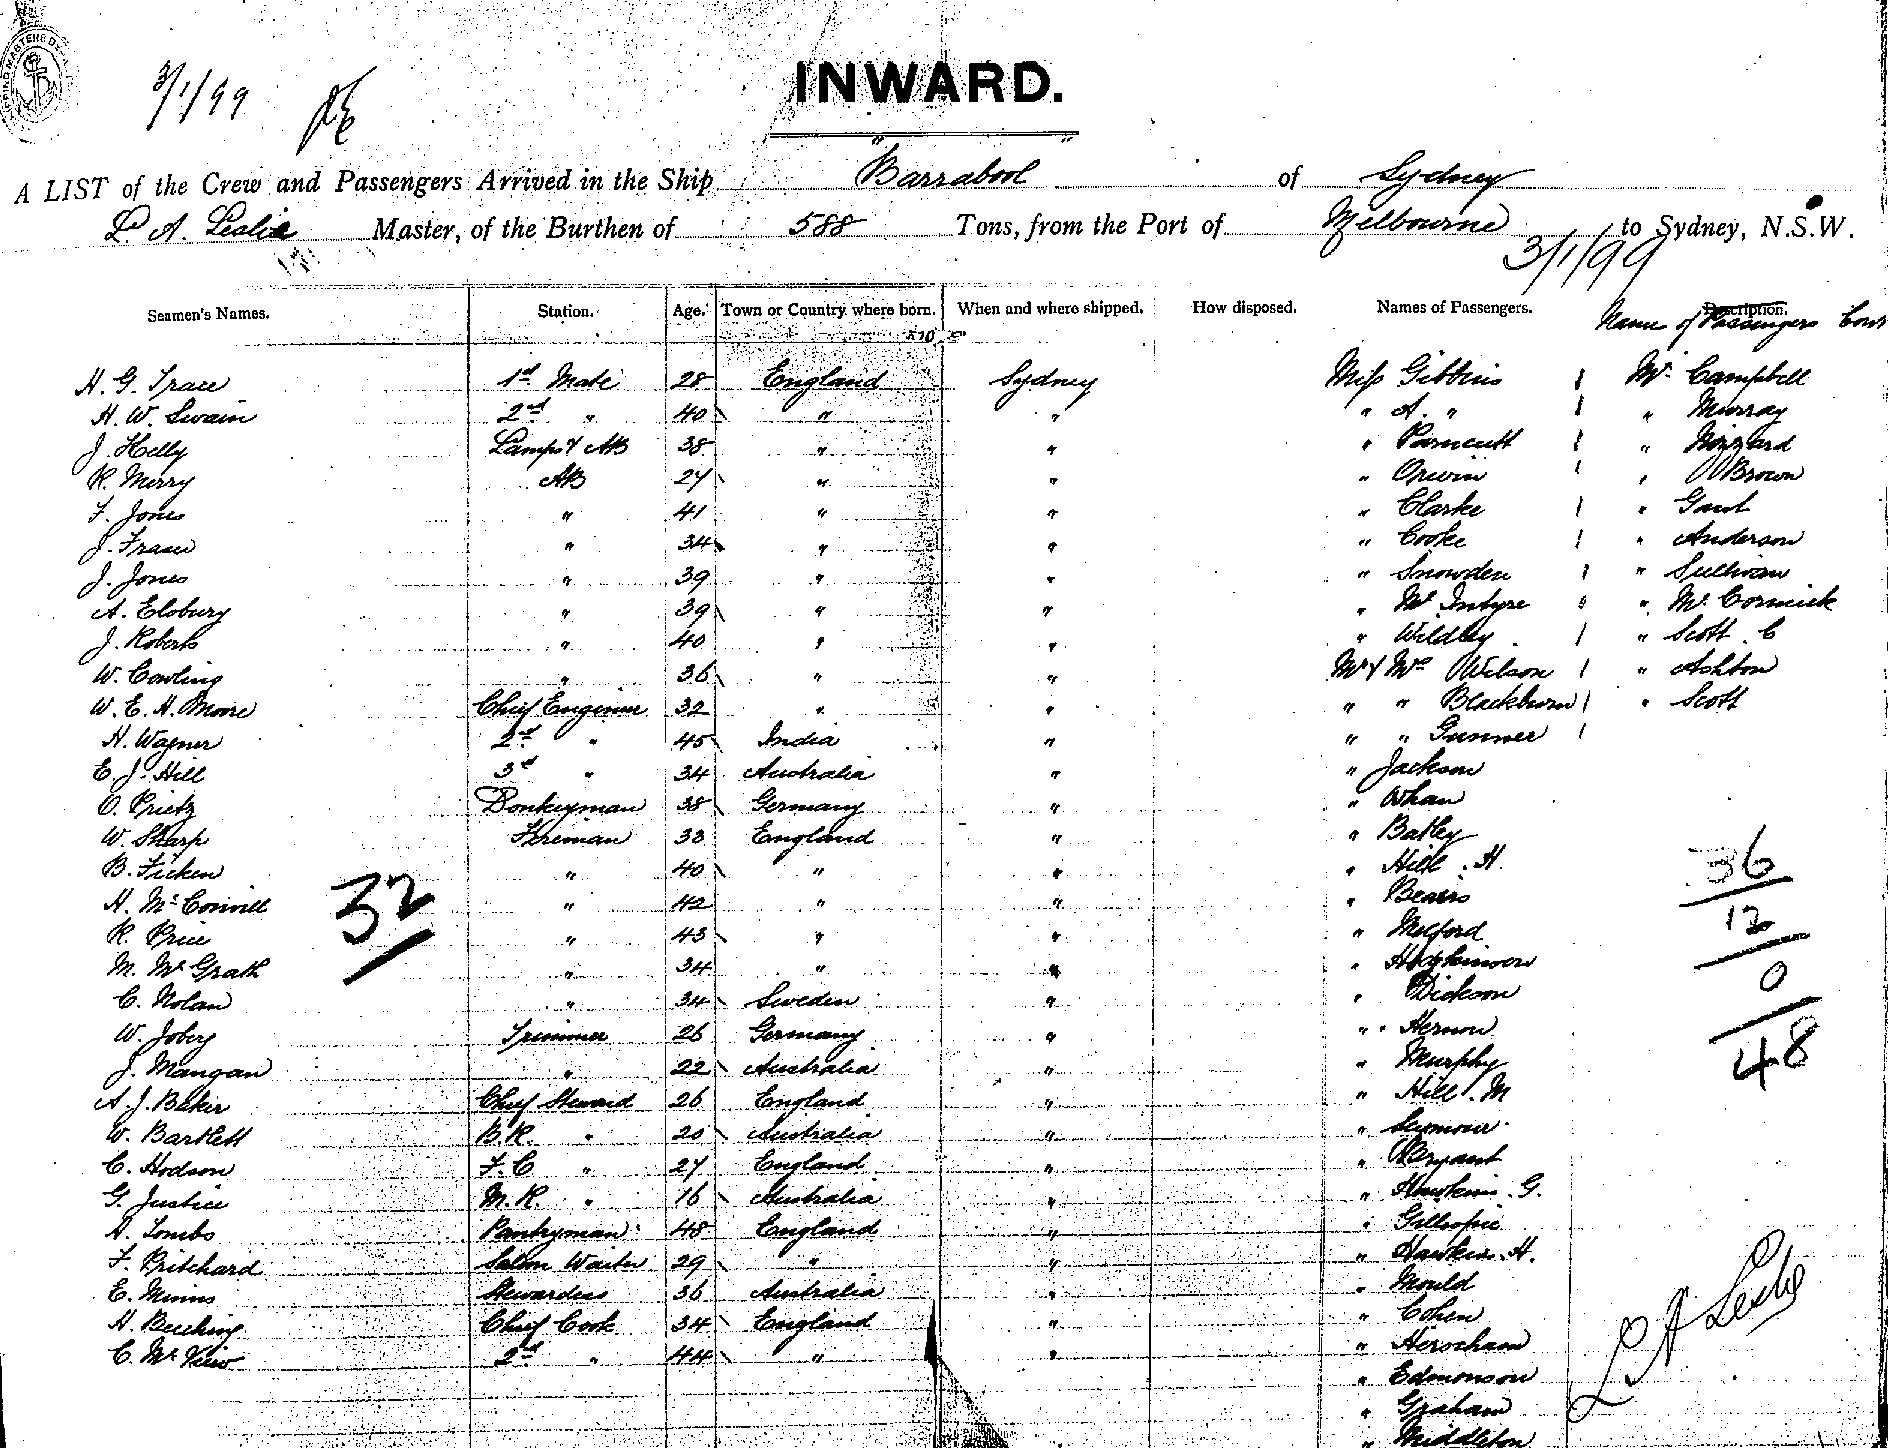 3/1/99
INWARD.
A LIST of the Crew and Passengers Arrived in the Ship Barrabool of Sydney
L. A. Leslie Master, of the Burthen of 588 Tons, from the Port of Melbourne to Sydney, N.S.W.
3/1/99
Seamen's Names. Station. Age. Town or Country where born. When and where shipped. How disposed. Names of Passengers. Description.
Names of Passengers
H. G. Trace 1st Mate 28 England Sydney Miss Gibbins Mr. Campbell
H. W. Swain 2nd " 40 " " " A. " " Murray
J. Helly Lamps & AB 38 " " " Parncutt "
R. Merry AB 27 " " " Orwin " Brown
F. Jones " 41 " " " Clarke "
J. Fraser " 34 " " " Cooke " Anderson
J. Jones " 39 " " " Snowden " Sullivan
A. Elsbury " 39 " " " McIntyre " McCormick
J. Roberts " 40 " " " Wildley " Scott C
W. Cowling " 36 " " Mr & Mrs Wilson " Ashton
W. E. H. Moore Chief Engineer 32 " " " " Blackburn " Scott
H. Wagner 2nd " 45 India " " " Gunner
E. J. Hill 3rd " 34 Australia " " Jackson
O. Prietz Donkeyman 38 Germany " " Whan
W. Sharp Fireman 33 England " " Batley
B. Ficken " 40 " " " Hill . H.
H. McConvill " 42 " " "
32
R. Price " 43 " " "
M. McGrath " 34 " " "
C. Nolan " 34 Sweden " " Dickson
W. Joberg Trimmer 26 Germany " " Hernon
J. Mangan " 22 Australia " " Murphy
A. J. Baker Chief Steward 26 England " " Hill . M
W. Bartlett B.R. " 20 Australia " " Seymour
C. Hodson F.C " 27 England " " Bryant
G. Justice M.R. " 16 Australia " " Hawkins . G.
A. Tombs Pantryman 48 England " " Gillespie
F. Pritchard Saloon Waiter 29 " " " Hawkins . H.
E. Minns Stewardess 36 Australia " " Mould
H. Beeching Chief Cook 34 England " " Cohen
C. 2nd " 44 " " "
" Edmonson
" Graham
" Middleton
36
12
0
48
L A Leslie